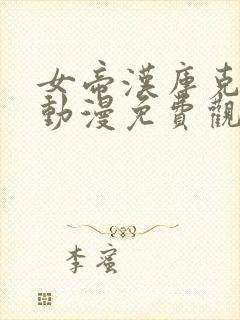 女帝漢庫克
動漫免費觀
李蜜